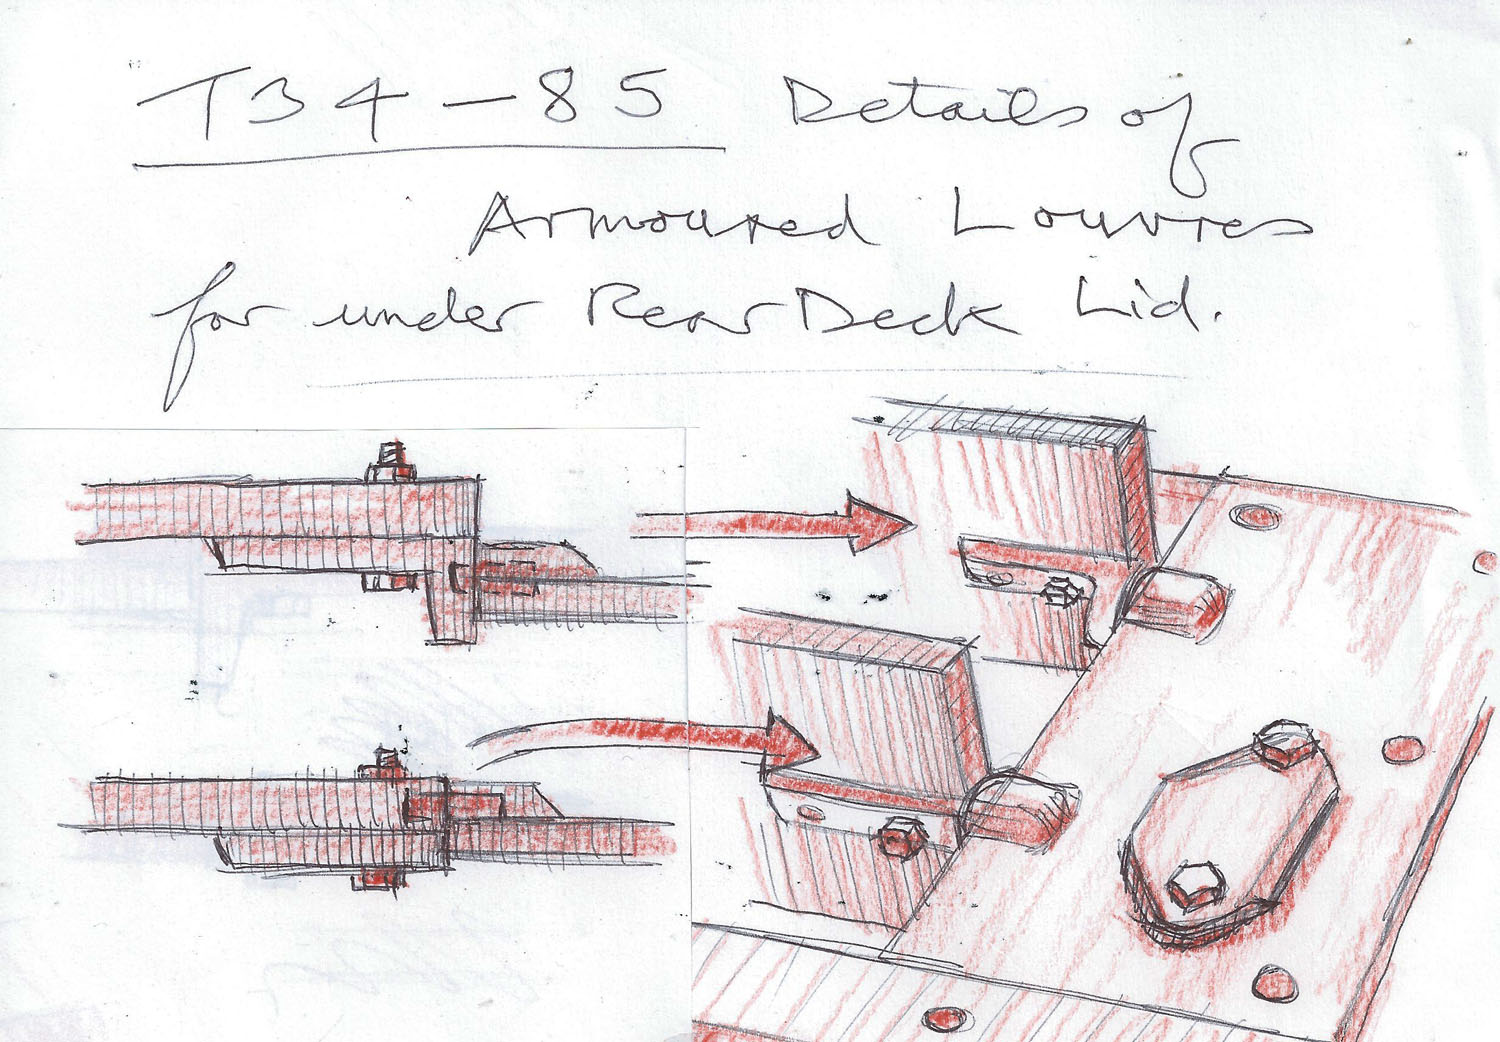 T34-85 Details of
Armoured Louvres
for under Rear Deck Lid.